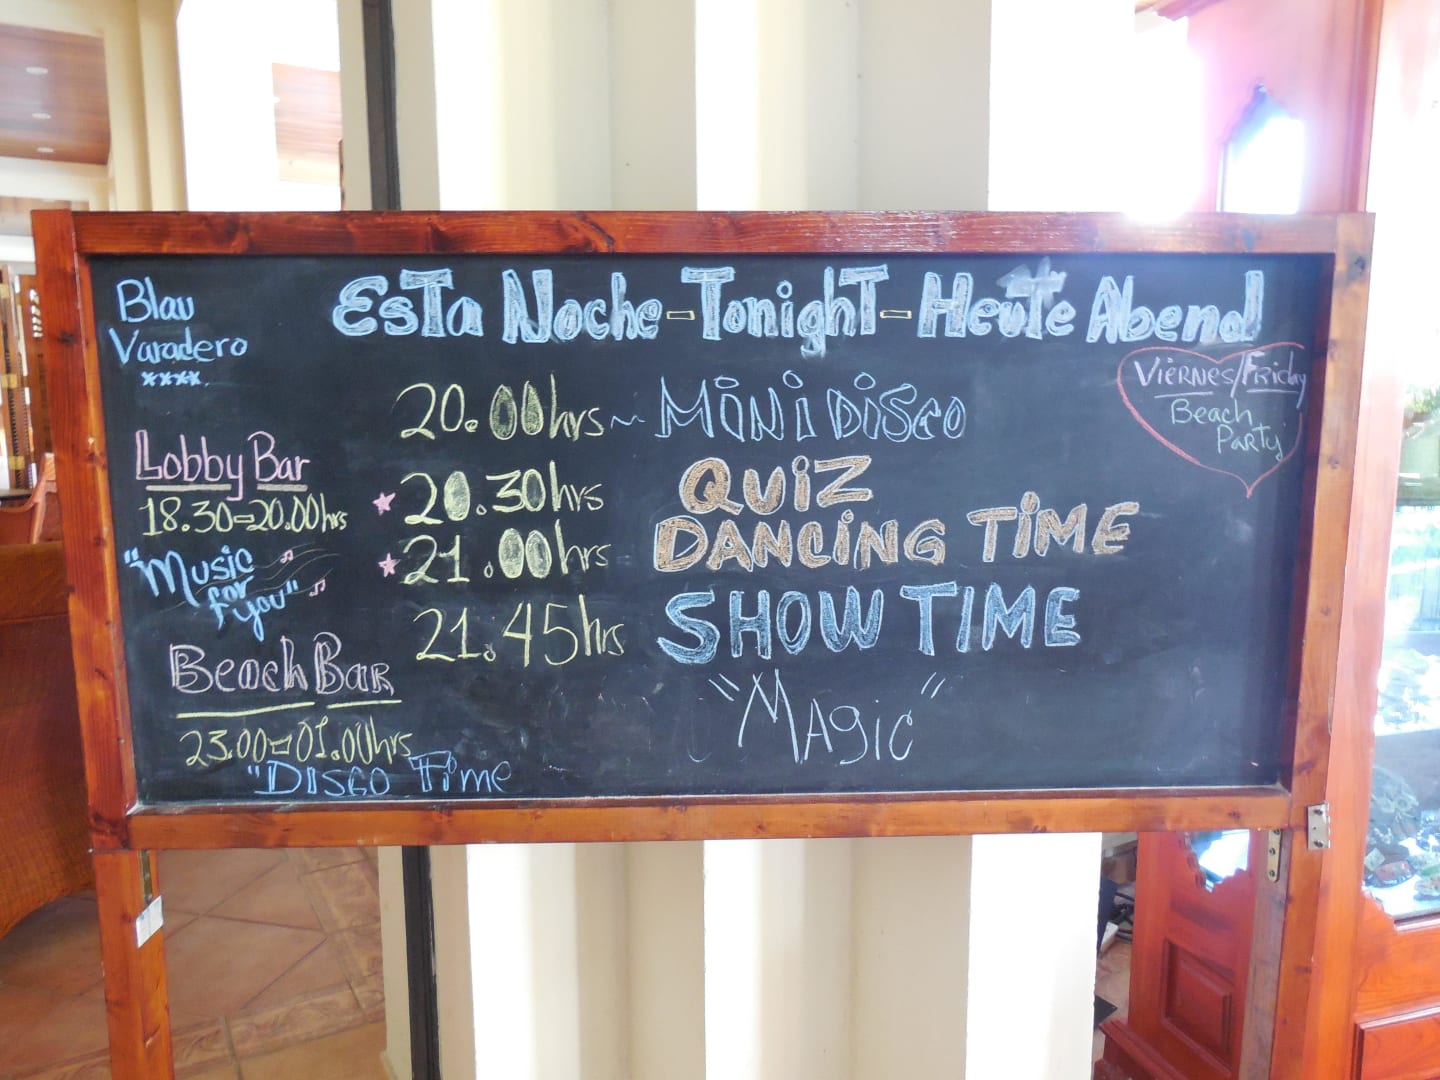 Blau
Varadero
****.
EsTa Noche - TonighT - HeuTe Abend
Viernes/Friday
Beach
Party
Lobby Bar
18.30-20.00hrs
"Music
for
you"
Beach Bar
23.00-01.00hrs
"Disco Time
20.00hrs ~ MiNi DiSCO
20.30hrs QUiZ
21.00hrs DANCiNG TiME
21.45hrs SHOW TIME
"Magic"